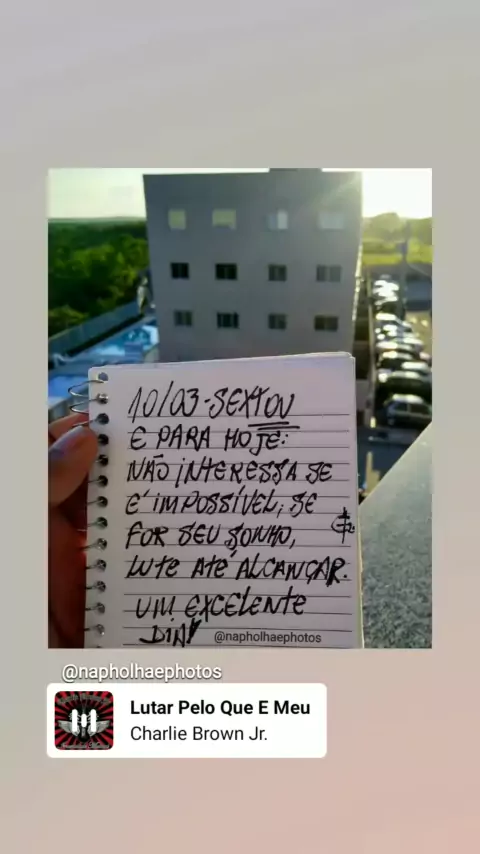 10/03-SEXTOU
E PARA HOJE:
NÃO INTERESSA SE
É IMPOSSÍVEL, SE
FOR SEU SONHO,
LUTE ATÉ ALCANÇAR.
UM EXCELENTE
DIA!
@napholhaephotos
@napholhaephotos
Lutar Pelo Que E Meu
Charlie Brown Jr.